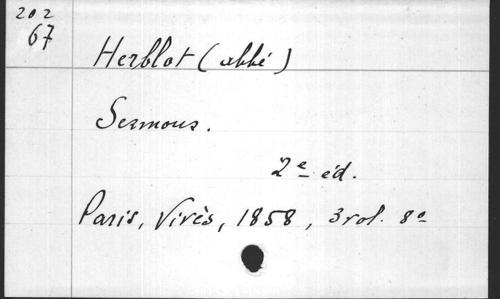 202
67
Herblot (abbé)
Sermons.
2e éd.
Paris, Vivès, 1858, 3 vol. 8o